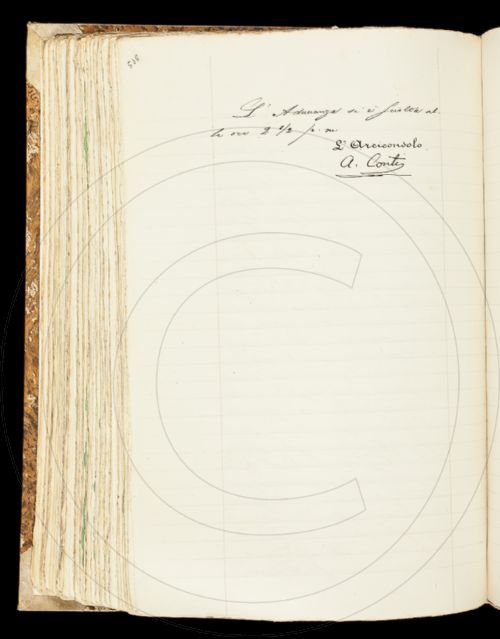 518
L' Adunanza si è sciolta al-
le ore 2 1/2 p. m
L' Arciconsolo
A. Conti